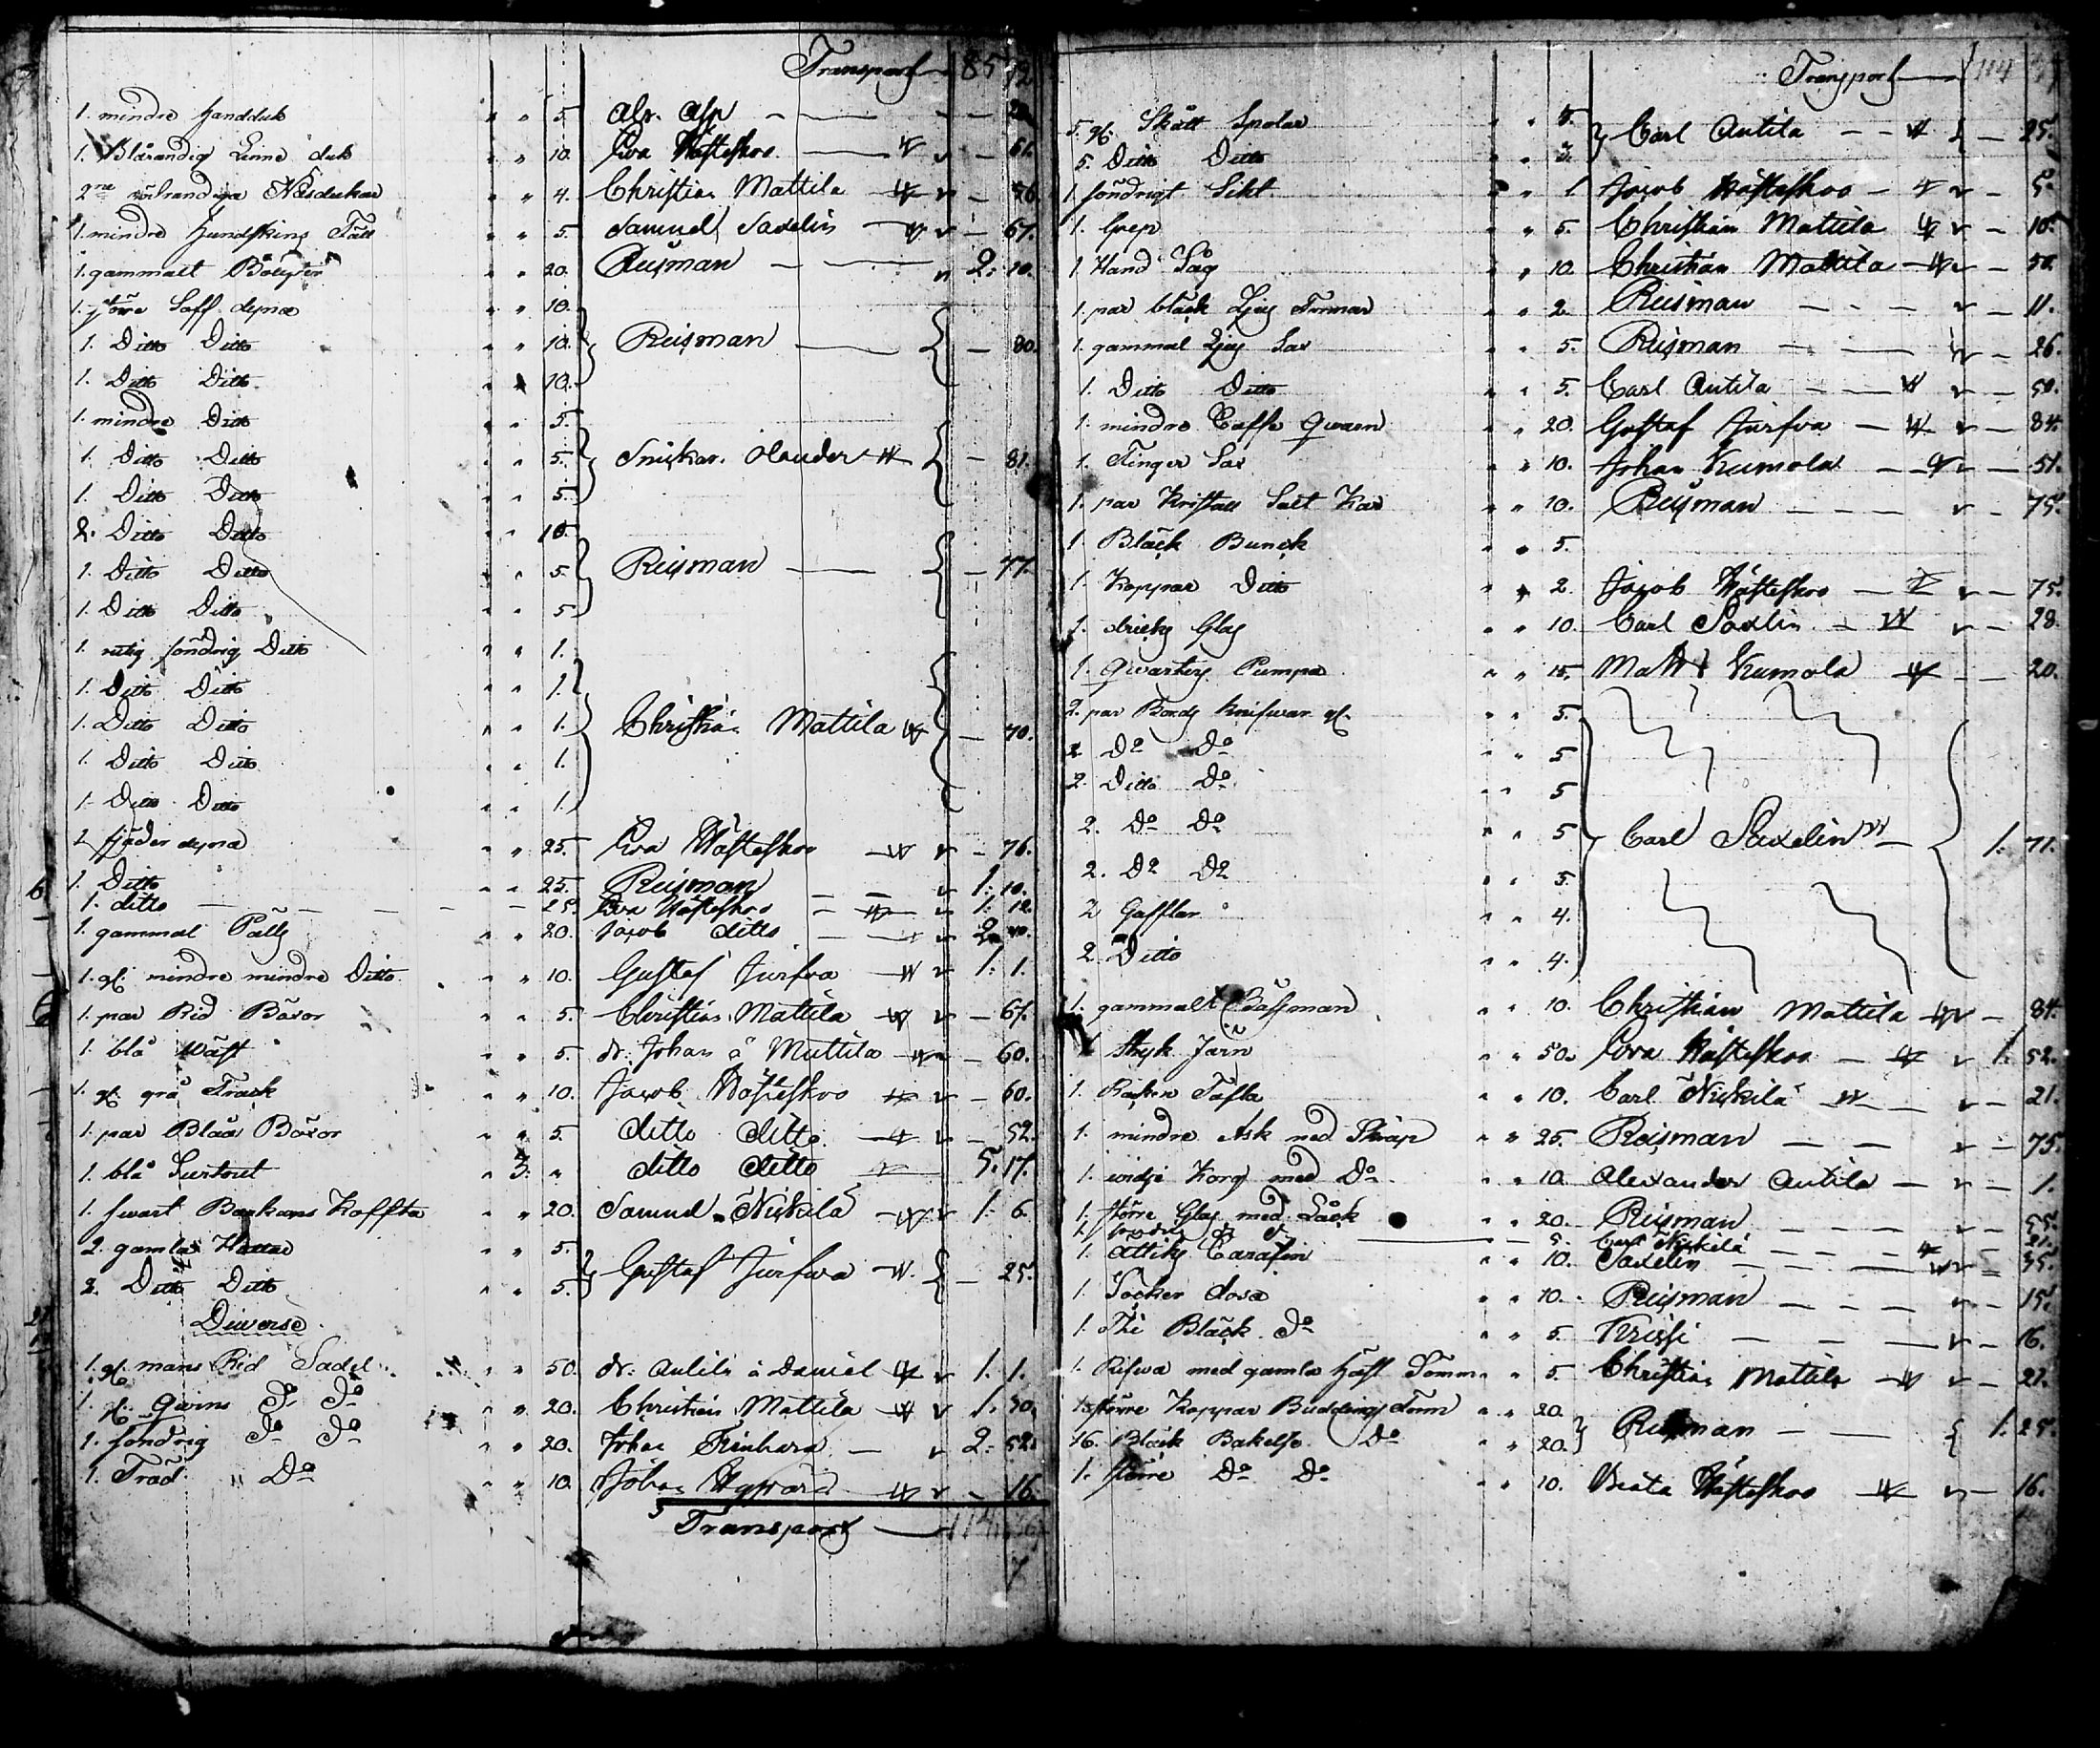 Transport 85 12
1. mindre Handduk " " 5. Alr. Asp — 20.
1. Blårandig Linne duk " " 10. Eva Wästeskoo — 61.
2ne rödrandiga Näsdukar " " 4. Christian Mattila — 56
1. mindre Hundskins Fäll " " 5. Samuel Saxelin — 67.
1. gammalt Bolster " " 20. Reisman — 2: 10.
1. större Soff dyna " " 10.
1. Ditto Ditto " " 10. Reisman — 80.
1. Ditto Ditto " " 10.
1. mindre Ditto " " 5.
1. Ditto Ditto " " 5. Snickar. Olander — 81.
1. Ditto Ditto " " 5.
2. Ditto Ditto " " 10.
1. Ditto Ditto " " 5. Reisman — 77.
1. Ditto Ditto " " 5
1. rutig söndrig Ditto " " 1.
1. Ditto Ditto " " 1.
1. Ditto Ditto " " 1. Christian Mattila — 70.
1. Ditto Ditto " " 1.
1. Ditto Ditto " " 1.
1. fjäder dyna " " 25. Eva Wästeskoo — 76.
1. Ditto " " 25. Reisman — 1: 10.
1. ditto — 25. Eva Wästeskoo — 1: 12.
1. gammal Päls " " 20. Jacob ditto — 2 40.
1. gl. mindre mindre Ditto " " 10. Gustaf Jurfva — 1: 1.
1. par Rid Böxor " " 5. Christian Mattila — 67.
1. blå Wäst " " 5. dr. Johan å Mattila — 60.
1. gl. grå Frack " " 10. Jacob Wästeskoo — 60.
1. par Blåa Böxor " " 5. ditto ditto — 52.
1. blå Surtout " 3: " ditto ditto 5. 17.
1. swart Barkans Koffta " " 20. Samuel Niskilä — 1: 6.
2. gamla Hattar " " 5.
2. Ditto Ditto " " 5. Gustaf Jurfva — 25.
Diverse
1. gl. mans Rid Sadel " " 50. dr: Antila å Daniel — 1. 1.
1. gl. Qvins Do Do " " 20. Christian Mattila — 1. 30.
1. söndrig Do Do " " 20. Johan — 2: 52.
1. Träd " Do " " 10. Johan — 16.
Transport — 114
Transport — 114
5. gl. Skått Spolar " " 5.
5. Ditto Ditto " " 3. Carl Antila — 25.
1 söndrigt Sikt " " 1 Jacob Wästeskoo — 5.
1. Grep " " 5. Christian Mattila — 10.
1. Hand Såg " " 10. Christian Mattila — 50.
1. par bläck Ljus Formar " " 2. Reisman — 11.
1. gammal Ljus Sax " " 5. Reisman — 26.
1. Ditto Ditto " " 5. Carl Antila — 50.
1. mindre Caffe Qwarn " " 20. Gustaf Jurfva — 84.
1. Finger Sax " " 10. Johan Kumola — 51.
1. par Kristall Salt Kar " " 10. Reisman — 75.
1. Bläck Bunck " " 5.
1. Koppar Ditto " " 2. Jacob Wästeskoo — 75.
1. dricks Glas " " 10. Carl Saxlin — 28.
1. Qwarters Pumpa " " 15. Matts Kumola — 20.
2. par Bords knifwar gl. " " 5.
2 Do Do " " 5
2. Ditto Do " " 5
2. Do Do " " 5 Carl Saxelin — 1. 71.
2. Do Do " " 5.
2 Gafflar " " 4.
2. Ditto " " 4.
1. gammalt Bässman " " 10. Christian Mattila — 84.
1 Stryk Järn " " 50. Eva Wästeskoo — 1. 52.
1. Räkne Tafla " " 10. Carl Niskilä — 21.
1. mindre Ask med Skräp " " 25. Reisman — 75.
1. widje Korg med Do " " 10. Alexander Antila — 1.
1. större Glas med Låck " " 20. Reisman — 55.
— 5. Carl Niskilä — 21.
1. Ättiks Carafin " " 10. Saxelin — 35.
1. Socker dosa " " 10. Reisman — 15.
1. Thé Bläck Do " " 5. — 16.
1. Rifwa med gamla Häst Sömm " " 5. Christian Mattila — 27.
1. större Koppar Buddings Form " " 20.
16. Bläck Bakelse Do " " 20. Reisman — 1. 25.
1. större Do Do " " 10. Beata Wästeskoo — 16.